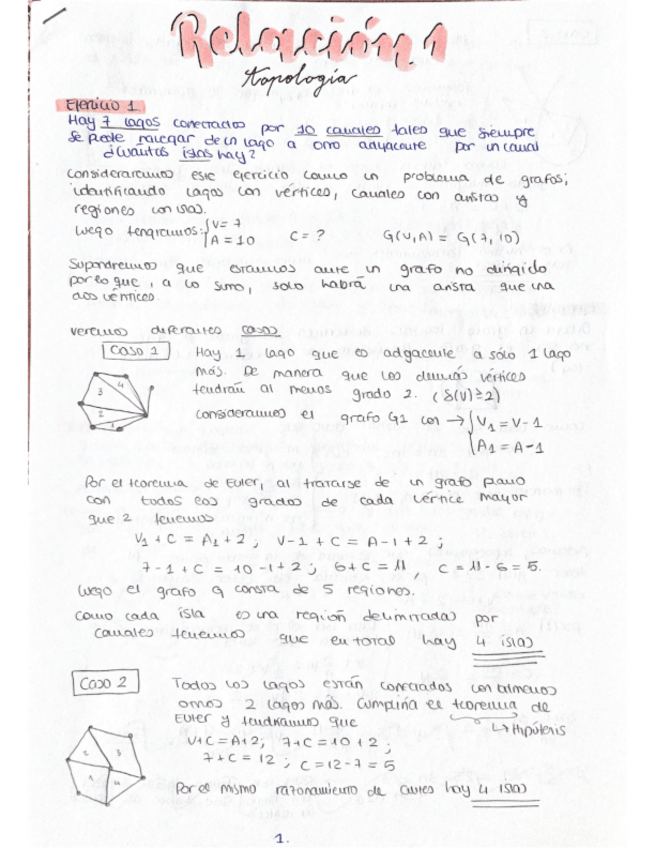 Relación 1
topología
Ejercicio 1
Hay 7 lagos conectados por 10 canales tales que siempre
se puede navegar de un lago a otro adyacente por un canal
¿Cuántas islas hay?
Consideraremos este ejercicio como un problema de grafos;
identificando lagos con vértices, canales con aristas y
regiones con islas.
Luego tengramos: { V = 7
A = 10 C = ? G(V,A) = G(7,10)
Supondremos que estamos ante un grafo no dirigido
por lo que, a lo sumo, solo habrá una arista que una
dos vértices.
Veremos diferentes casos
Caso 1 Hay 1 lago que es adyacente a sólo 1 lago
más. De manera que los demás vértices
tendrán al menos grado 2. (δ(V)≥2)
consideramos el grafo G1 con → { V1 = V - 1
A1 = A - 1
3 4
2
1
Por el teorema de Euler, al tratarse de un grafo plano
con todos los grados de cada vértice mayor
que 2 tenemos
V1 + C = A1 + 2 ; V - 1 + C = A - 1 + 2 ;
7 - 1 + C = 10 - 1 + 2 ; 6 + C = 11 , C = 11 - 6 = 5.
Luego el grafo G consta de 5 regiones.
Como cada isla es una región delimitada por
canales tenemos que en total hay 4 islas
Caso 2 Todos los lagos están conectados con al menos
otros 2 lagos más. Cumpliría el teorema de
Euler y tendríamos que ↳ Hipótesis
V + C = A + 2 ; 7 + C = 10 + 2 ;
7 + C = 12 ; C = 12 - 7 = 5
2 3
1 4
Por el mismo razonamiento de antes hay 4 islas
1.